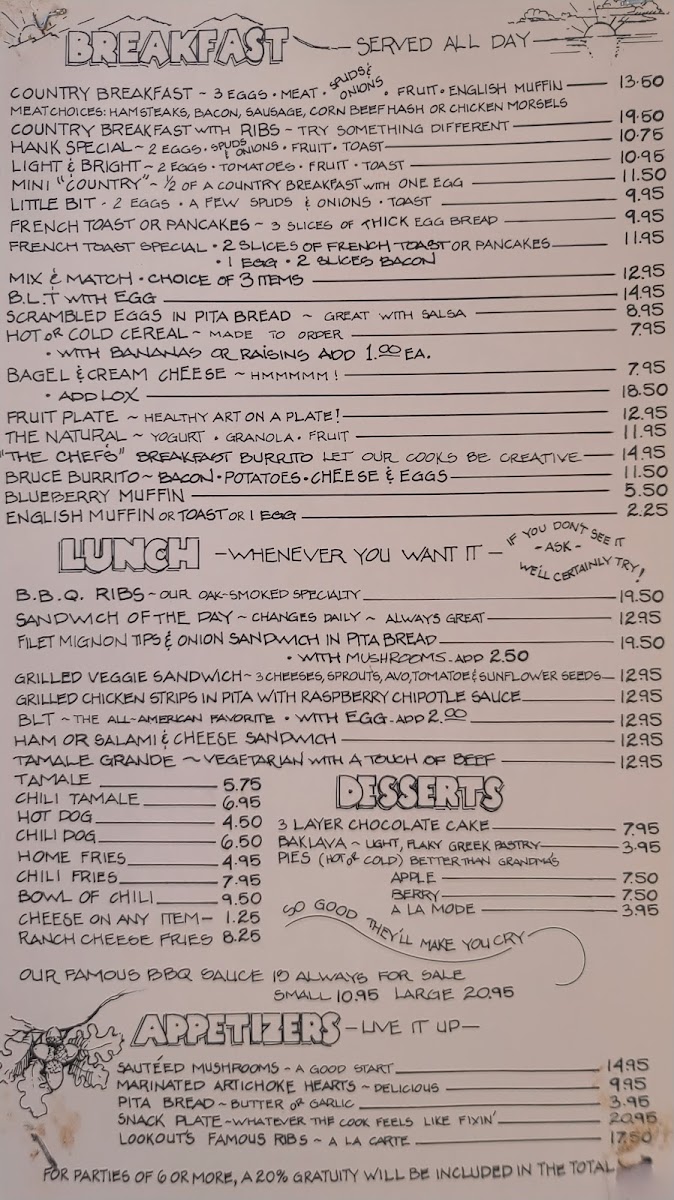 BREAKFAST — SERVED ALL DAY —
COUNTRY BREAKFAST ~ 3 EGGS • MEAT • SPUDS & ONIONS • FRUIT • ENGLISH MUFFIN — 13.50
MEAT CHOICES: HAM STEAKS, BACON, SAUSAGE, CORN BEEF HASH OR CHICKEN MORSELS
COUNTRY BREAKFAST WITH RIBS ~ TRY SOMETHING DIFFERENT — 19.50
HANK SPECIAL ~ 2 EGGS • SPUDS & ONIONS • FRUIT • TOAST — 10.75
LIGHT & BRIGHT ~ 2 EGGS • TOMATOES • FRUIT • TOAST — 10.95
MINI "COUNTRY" ~ ½ OF A COUNTRY BREAKFAST WITH ONE EGG — 11.50
LITTLE BIT - 2 EGGS • A FEW SPUDS & ONIONS • TOAST — 9.95
FRENCH TOAST OR PANCAKES ~ 3 SLICES OF THICK EGG BREAD — 9.95
FRENCH TOAST SPECIAL • 2 SLICES OF FRENCH TOAST OR PANCAKES — 11.95
• 1 EGG • 2 SLICES BACON
MIX & MATCH • CHOICE OF 3 ITEMS — 12.95
B.L.T WITH EGG — 14.95
SCRAMBLED EGGS IN PITA BREAD ~ GREAT WITH SALSA — 8.95
HOT OR COLD CEREAL ~ MADE TO ORDER — 7.95
• WITH BANANAS OR RAISINS ADD 1.00 EA.
BAGEL & CREAM CHEESE ~ HMMMMM! — 7.95
• ADD LOX — 18.50
FRUIT PLATE ~ HEALTHY ART ON A PLATE! — 12.95
THE NATURAL ~ YOGURT • GRANOLA • FRUIT — 11.95
"THE CHEF'S" BREAKFAST BURRITO LET OUR COOKS BE CREATIVE — 14.95
BRUCE BURRITO ~ BACON • POTATOES • CHEESE & EGGS — 11.50
BLUEBERRY MUFFIN — 5.50
ENGLISH MUFFIN OR TOAST OR 1 EGG — 2.25
LUNCH — WHENEVER YOU WANT IT —
IF YOU DON'T SEE IT
- ASK -
WE'LL CERTAINLY TRY!
B.B.Q. RIBS ~ OUR OAK-SMOKED SPECIALTY — 19.50
SANDWICH OF THE DAY ~ CHANGES DAILY ~ ALWAYS GREAT — 12.95
FILET MIGNON TIPS & ONION SANDWICH IN PITA BREAD — 19.50
• WITH MUSHROOMS - ADD 2.50
GRILLED VEGGIE SANDWICH ~ 3 CHEESES, SPROUTS, AVO, TOMATOE & SUNFLOWER SEEDS — 12.95
GRILLED CHICKEN STRIPS IN PITA WITH RASPBERRY CHIPOTLE SAUCE — 12.95
BLT ~ THE ALL-AMERICAN FAVORITE • WITH EGG - ADD 2.00 — 12.95
HAM OR SALAMI & CHEESE SANDWICH — 12.95
TAMALE GRANDE ~ VEGETARIAN WITH A TOUCH OF BEEF — 12.95
TAMALE — 5.75
CHILI TAMALE — 6.95
HOT DOG — 4.50
CHILI DOG — 6.50
HOME FRIES — 4.95
CHILI FRIES — 7.95
BOWL OF CHILI — 9.50
CHEESE ON ANY ITEM — 1.25
RANCH CHEESE FRIES 8.25
DESSERTS
3 LAYER CHOCOLATE CAKE — 7.95
BAKLAVA ~ LIGHT, FLAKY GREEK PASTRY — 3.95
PIES (HOT OR COLD) BETTER THAN GRANDMA'S
APPLE — 7.50
BERRY — 7.50
A LA MODE — 3.95
SO GOOD THEY'LL MAKE YOU CRY
OUR FAMOUS BBQ SAUCE IS ALWAYS FOR SALE
SMALL 10.95 LARGE 20.95
APPETIZERS — LIVE IT UP —
SAUTÉED MUSHROOMS - A GOOD START — 14.95
MARINATED ARTICHOKE HEARTS ~ DELICIOUS — 9.95
PITA BREAD ~ BUTTER OR GARLIC — 3.95
SNACK PLATE ~ WHATEVER THE COOK FEELS LIKE FIXIN' — 20.95
LOOKOUT'S FAMOUS RIBS ~ A LA CARTE — 17.50
FOR PARTIES OF 6 OR MORE, A 20% GRATUITY WILL BE INCLUDED IN THE TOTAL